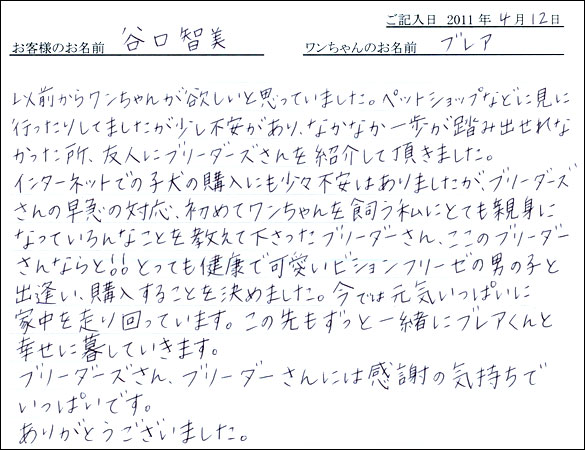 ご記入日 2011年4月12日
お客様のお名前 谷口智美 ワンちゃんのお名前 ブレア
以前からワンちゃんが欲しいと思っていました。ペットショップなどに見に
行ったりしてましたが少し不安があり、なかなか一歩が踏み出せれな
かった所、友人にブリーダーズさんを紹介して頂きました。
インターネットでの子犬の購入にも少々不安はありましたが、ブリーダーズ
さんの早急の対応、初めてワンちゃんを飼う私にとても親身に
なっていろんなことを教えて下さったブリーダーさん、ここのブリーダー
さんならと!!とっても健康で可愛いビションフリーゼの男の子と
出逢い、購入することを決めました。今では元気いっぱいに
家中を走り回っています。この先もずっと一緒にブレアくんと
幸せに暮していきます。
ブリーダーズさん、ブリーダーさんには感謝の気持ちで
いっぱいです。
ありがとうございました。